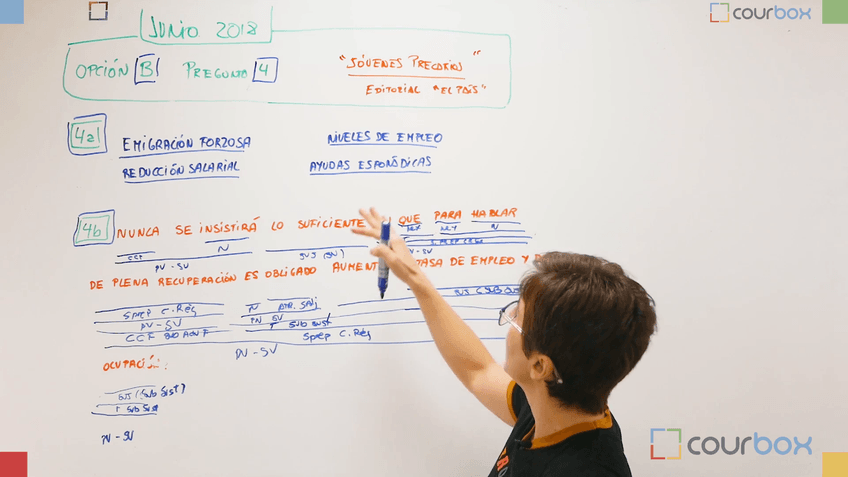 courbox
JUNIO 2018
OPCIÓN B PREGUNTA 4
"JÓVENES PRECARIOS"
EDITORIAL "EL PAÍS"
4a
EMIGRACIÓN FORZOSA
NIVELES DE EMPLEO
REDUCCIÓN SALARIAL
AYUDAS ESPORÁDICAS
4b
NUNCA SE INSISTIRÁ LO SUFICIENTE QUE PARA HABLAR
CCT N SUJ (SN) NX N
PV-SV PV-SV
DE PLENA RECUPERACIÓN ES OBLIGADO AUMENT TASA DE EMPLEO Y
SPREP C.Rég N ATR. SAdj
PV-SV PN SV
CCF SUB ADV F T SUB SUST SPREP C.Rég
PV-SV
OCUPACIÓN
SUJ (SUB SUST)
T SUB SUST
PV-SV
courbox